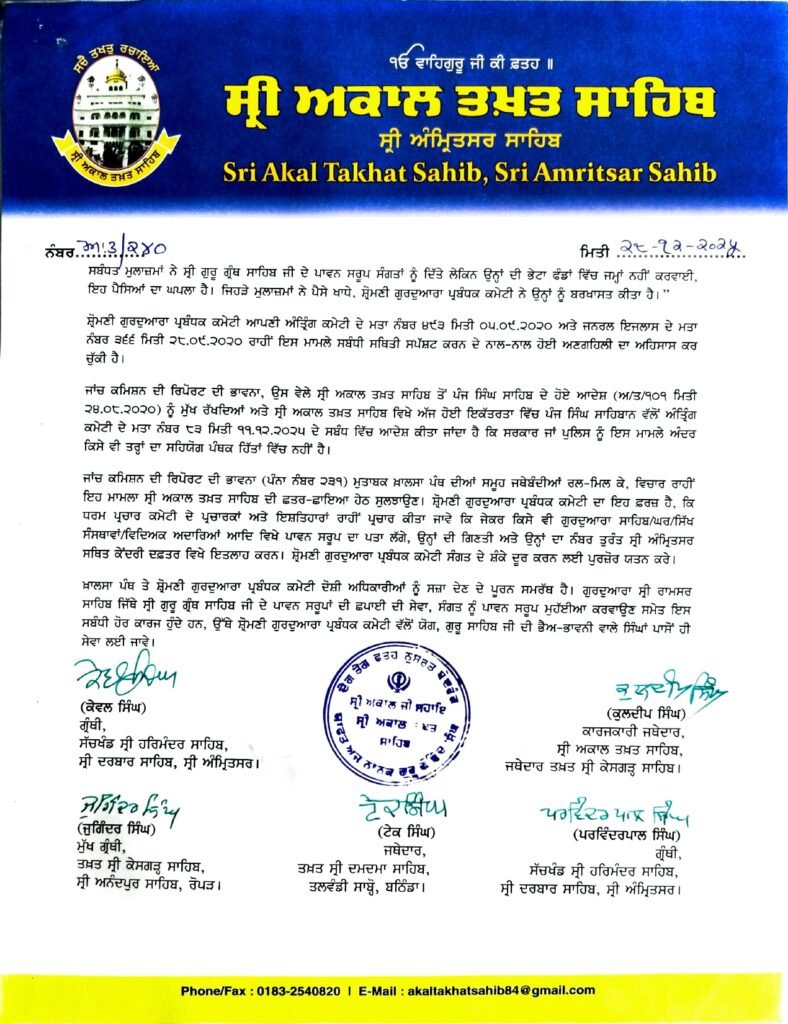 ਸਚੈ ਤਖਤੁ ਰਚਾਇਆ
ਸ੍ਰੀ ਅਕਾਲ ਤਖ਼ਤ ਸਾਹਿਬ
ੴ ਵਾਹਿਗੁਰੂ ਜੀ ਕੀ ਫ਼ਤਹ ॥
ਸ੍ਰੀ ਅਕਾਲ ਤਖ਼ਤ ਸਾਹਿਬ
ਸ੍ਰੀ ਅੰਮ੍ਰਿਤਸਰ ਸਾਹਿਬ
Sri Akal Takhat Sahib, Sri Amritsar Sahib
ਨੰਬਰ ਅ:3/੨੪੦ ਮਿਤੀ ੨੮-੧੨-੨੦੨੫
ਸਬੰਧਤ ਮੁਲਾਜ਼ਮਾਂ ਨੇ ਸ੍ਰੀ ਗੁਰੂ ਗ੍ਰੰਥ ਸਾਹਿਬ ਜੀ ਦੇ ਪਾਵਨ ਸਰੂਪ ਸੰਗਤਾਂ ਨੂੰ ਦਿੱਤੇ ਲੇਕਿਨ ਉਨ੍ਹਾਂ ਦੀ ਭੇਟਾ ਫੰਡਾਂ ਵਿੱਚ ਜਮ੍ਹਾਂ ਨਹੀਂ ਕਰਵਾਈ,
ਇਹ ਪੈਸਿਆਂ ਦਾ ਘਪਲਾ ਹੈ। ਜਿਹੜੇ ਮੁਲਾਜ਼ਮਾਂ ਨੇ ਪੈਸੇ ਖਾਧੇ, ਸ਼੍ਰੋਮਣੀ ਗੁਰਦੁਆਰਾ ਪ੍ਰਬੰਧਕ ਕਮੇਟੀ ਨੇ ਉਨ੍ਹਾਂ ਨੂੰ ਬਰਖਾਸਤ ਕੀਤਾ ਹੈ।”
ਸ਼੍ਰੋਮਣੀ ਗੁਰਦੁਆਰਾ ਪ੍ਰਬੰਧਕ ਕਮੇਟੀ ਆਪਣੀ ਅੰਤ੍ਰਿੰਗ ਕਮੇਟੀ ਦੇ ਮਤਾ ਨੰਬਰ ੪੯੩ ਮਿਤੀ ੦੫.੦੯.੨੦੨੦ ਅਤੇ ਜਨਰਲ ਇਜਲਾਸ ਦੇ ਮਤਾ
ਨੰਬਰ ੩੬੬ ਮਿਤੀ ੨੮.੦੯.੨੦੨੦ ਰਾਹੀਂ ਇਸ ਮਾਮਲੇ ਸਬੰਧੀ ਸਥਿਤੀ ਸਪੱਸ਼ਟ ਕਰਨ ਦੇ ਨਾਲ-ਨਾਲ ਹੋਈ ਅਣਗਹਿਲੀ ਦਾ ਅਹਿਸਾਸ ਕਰ
ਚੁੱਕੀ ਹੈ।
ਜਾਂਚ ਕਮਿਸ਼ਨ ਦੀ ਰਿਪੋਰਟ ਦੀ ਭਾਵਨਾ, ਉਸ ਵੇਲੇ ਸ੍ਰੀ ਅਕਾਲ ਤਖ਼ਤ ਸਾਹਿਬ ਤੋਂ ਪੰਜ ਸਿੰਘ ਸਾਹਿਬ ਦੇ ਹੋਏ ਆਦੇਸ਼ (ਅ/ਤ/੧੦੧ ਮਿਤੀ
੨੪.੦੮.੨੦੨੦) ਨੂੰ ਮੁੱਖ ਰੱਖਦਿਆਂ ਅਤੇ ਸ੍ਰੀ ਅਕਾਲ ਤਖ਼ਤ ਸਾਹਿਬ ਵਿਖੇ ਅੱਜ ਹੋਈ ਇਕੱਤਰਤਾ ਵਿੱਚ ਪੰਜ ਸਿੰਘ ਸਾਹਿਬਾਨ ਵੱਲੋਂ ਅੰਤ੍ਰਿੰਗ
ਕਮੇਟੀ ਦੇ ਮਤਾ ਨੰਬਰ ੮੩ ਮਿਤੀ ੧੧.੧੨.੨੦੨੫ ਦੇ ਸਬੰਧ ਵਿੱਚ ਆਦੇਸ਼ ਕੀਤਾ ਜਾਂਦਾ ਹੈ ਕਿ ਸਰਕਾਰ ਜਾਂ ਪੁਲਿਸ ਨੂੰ ਇਸ ਮਾਮਲੇ ਅੰਦਰ
ਕਿਸੇ ਵੀ ਤਰ੍ਹਾਂ ਦਾ ਸਹਿਯੋਗ ਪੰਥਕ ਹਿੱਤਾਂ ਵਿੱਚ ਨਹੀਂ ਹੈ।
ਜਾਂਚ ਕਮਿਸ਼ਨ ਦੀ ਰਿਪੋਰਟ ਦੀ ਭਾਵਨਾ (ਪੰਨਾ ਨੰਬਰ ੨੩੧) ਮੁਤਾਬਕ ਖ਼ਾਲਸਾ ਪੰਥ ਦੀਆਂ ਸਮੂਹ ਜਥੇਬੰਦੀਆਂ ਰਲ-ਮਿਲ ਕੇ, ਵਿਚਾਰ ਰਾਹੀਂ
ਇਹ ਮਾਮਲਾ ਸ੍ਰੀ ਅਕਾਲ ਤਖ਼ਤ ਸਾਹਿਬ ਦੀ ਛਤਰ-ਛਾਇਆ ਹੇਠ ਸੁਲਝਾਉਣ। ਸ਼੍ਰੋਮਣੀ ਗੁਰਦੁਆਰਾ ਪ੍ਰਬੰਧਕ ਕਮੇਟੀ ਦਾ ਇਹ ਫ਼ਰਜ਼ ਹੈ, ਕਿ
ਧਰਮ ਪ੍ਰਚਾਰ ਕਮੇਟੀ ਦੇ ਪ੍ਰਚਾਰਕਾਂ ਅਤੇ ਇਸ਼ਤਿਹਾਰਾਂ ਰਾਹੀਂ ਪ੍ਰਚਾਰ ਕੀਤਾ ਜਾਵੇ ਕਿ ਜੇਕਰ ਕਿਸੇ ਵੀ ਗੁਰਦੁਆਰਾ ਸਾਹਿਬ/ਘਰ/ਸਿੱਖ
ਸੰਸਥਾਵਾਂ/ਵਿਦਿਅਕ ਅਦਾਰਿਆਂ ਆਦਿ ਵਿਖੇ ਪਾਵਨ ਸਰੂਪ ਦਾ ਪਤਾ ਲੱਗੇ, ਉਨ੍ਹਾਂ ਦੀ ਗਿਣਤੀ ਅਤੇ ਉਨ੍ਹਾਂ ਦਾ ਨੰਬਰ ਤੁਰੰਤ ਸ੍ਰੀ ਅੰਮ੍ਰਿਤਸਰ
ਸਥਿਤ ਕੇਂਦਰੀ ਦਫ਼ਤਰ ਵਿਖੇ ਇਤਲਾਹ ਕਰਨ। ਸ਼੍ਰੋਮਣੀ ਗੁਰਦੁਆਰਾ ਪ੍ਰਬੰਧਕ ਕਮੇਟੀ ਸੰਗਤ ਦੇ ਸ਼ੰਕੇ ਦੂਰ ਕਰਨ ਲਈ ਪੁਰਜ਼ੋਰ ਯਤਨ ਕਰੇ।
ਖ਼ਾਲਸਾ ਪੰਥ ਤੇ ਸ਼੍ਰੋਮਣੀ ਗੁਰਦੁਆਰਾ ਪ੍ਰਬੰਧਕ ਕਮੇਟੀ ਦੋਸ਼ੀ ਅਧਿਕਾਰੀਆਂ ਨੂੰ ਸਜ਼ਾ ਦੇਣ ਦੇ ਪੂਰਨ ਸਮਰੱਥ ਹੈ। ਗੁਰਦੁਆਰਾ ਸ੍ਰੀ ਰਾਮਸਰ
ਸਾਹਿਬ ਜਿੱਥੇ ਸ੍ਰੀ ਗੁਰੂ ਗ੍ਰੰਥ ਸਾਹਿਬ ਜੀ ਦੇ ਪਾਵਨ ਸਰੂਪਾਂ ਦੀ ਛਪਾਈ ਦੀ ਸੇਵਾ, ਸੰਗਤ ਨੂੰ ਪਾਵਨ ਸਰੂਪ ਮੁਹੱਈਆ ਕਰਵਾਉਣ ਸਮੇਤ ਇਸ
ਸਬੰਧੀ ਹੋਰ ਕਾਰਜ ਹੁੰਦੇ ਹਨ, ਉੱਥੇ ਸ਼੍ਰੋਮਣੀ ਗੁਰਦੁਆਰਾ ਪ੍ਰਬੰਧਕ ਕਮੇਟੀ ਵੱਲੋਂ ਯੋਗ, ਗੁਰੂ ਸਾਹਿਬ ਜੀ ਦੀ ਭੈਅ-ਭਾਵਨੀ ਵਾਲੇ ਸਿੰਘਾਂ ਪਾਸੋਂ ਹੀ
ਸੇਵਾ ਲਈ ਜਾਵੇ।
ਕੇਵਲ ਸਿੰਘ
(ਕੇਵਲ ਸਿੰਘ)
ਗ੍ਰੰਥੀ,
ਸੱਚਖੰਡ ਸ੍ਰੀ ਹਰਿਮੰਦਰ ਸਾਹਿਬ,
ਸ੍ਰੀ ਦਰਬਾਰ ਸਾਹਿਬ, ਸ੍ਰੀ ਅੰਮ੍ਰਿਤਸਰ।
ਦੇਗ ਤੇਗ ਫ਼ਤਹ ਨੁਸਰਤ ਬੇਦਰੰਗ
ਯਾਫ਼ਤ ਅਜ਼ ਨਾਨਕ ਗੁਰੂ ਗੋਬਿੰਦ ਸਿੰਘ
ਸ੍ਰੀ ਅਕਾਲ ਜੀ ਸਹਾਇ
ਸ੍ਰੀ ਅਕਾਲ ਤਖ਼ਤ
ਸਾਹਿਬ
ਕੁਲਦੀਪ ਸਿੰਘ
(ਕੁਲਦੀਪ ਸਿੰਘ)
ਕਾਰਜਕਾਰੀ ਜਥੇਦਾਰ,
ਸ੍ਰੀ ਅਕਾਲ ਤਖ਼ਤ ਸਾਹਿਬ,
ਜਥੇਦਾਰ ਤਖ਼ਤ ਸ੍ਰੀ ਕੇਸਗੜ੍ਹ ਸਾਹਿਬ।
ਜੁਗਿੰਦਰ ਸਿੰਘ
(ਜੁਗਿੰਦਰ ਸਿੰਘ)
ਮੁੱਖ ਗ੍ਰੰਥੀ,
ਤਖ਼ਤ ਸ੍ਰੀ ਕੇਸਗੜ੍ਹ ਸਾਹਿਬ,
ਸ੍ਰੀ ਅਨੰਦਪੁਰ ਸਾਹਿਬ, ਰੋਪੜ।
ਟੇਕ ਸਿੰਘ
(ਟੇਕ ਸਿੰਘ)
ਜਥੇਦਾਰ,
ਤਖ਼ਤ ਸ੍ਰੀ ਦਮਦਮਾ ਸਾਹਿਬ,
ਤਲਵੰਡੀ ਸਾਬ੍ਹੋ, ਬਠਿੰਡਾ।
ਪਰਵਿੰਦਰ ਪਾਲ ਸਿੰਘ
(ਪਰਵਿੰਦਰਪਾਲ ਸਿੰਘ)
ਗ੍ਰੰਥੀ,
ਸੱਚਖੰਡ ਸ੍ਰੀ ਹਰਿਮੰਦਰ ਸਾਹਿਬ,
ਸ੍ਰੀ ਦਰਬਾਰ ਸਾਹਿਬ, ਸ੍ਰੀ ਅੰਮ੍ਰਿਤਸਰ।
Phone/Fax : 0183-2540820 | E-Mail : akaltakhatsahib84@gmail.com